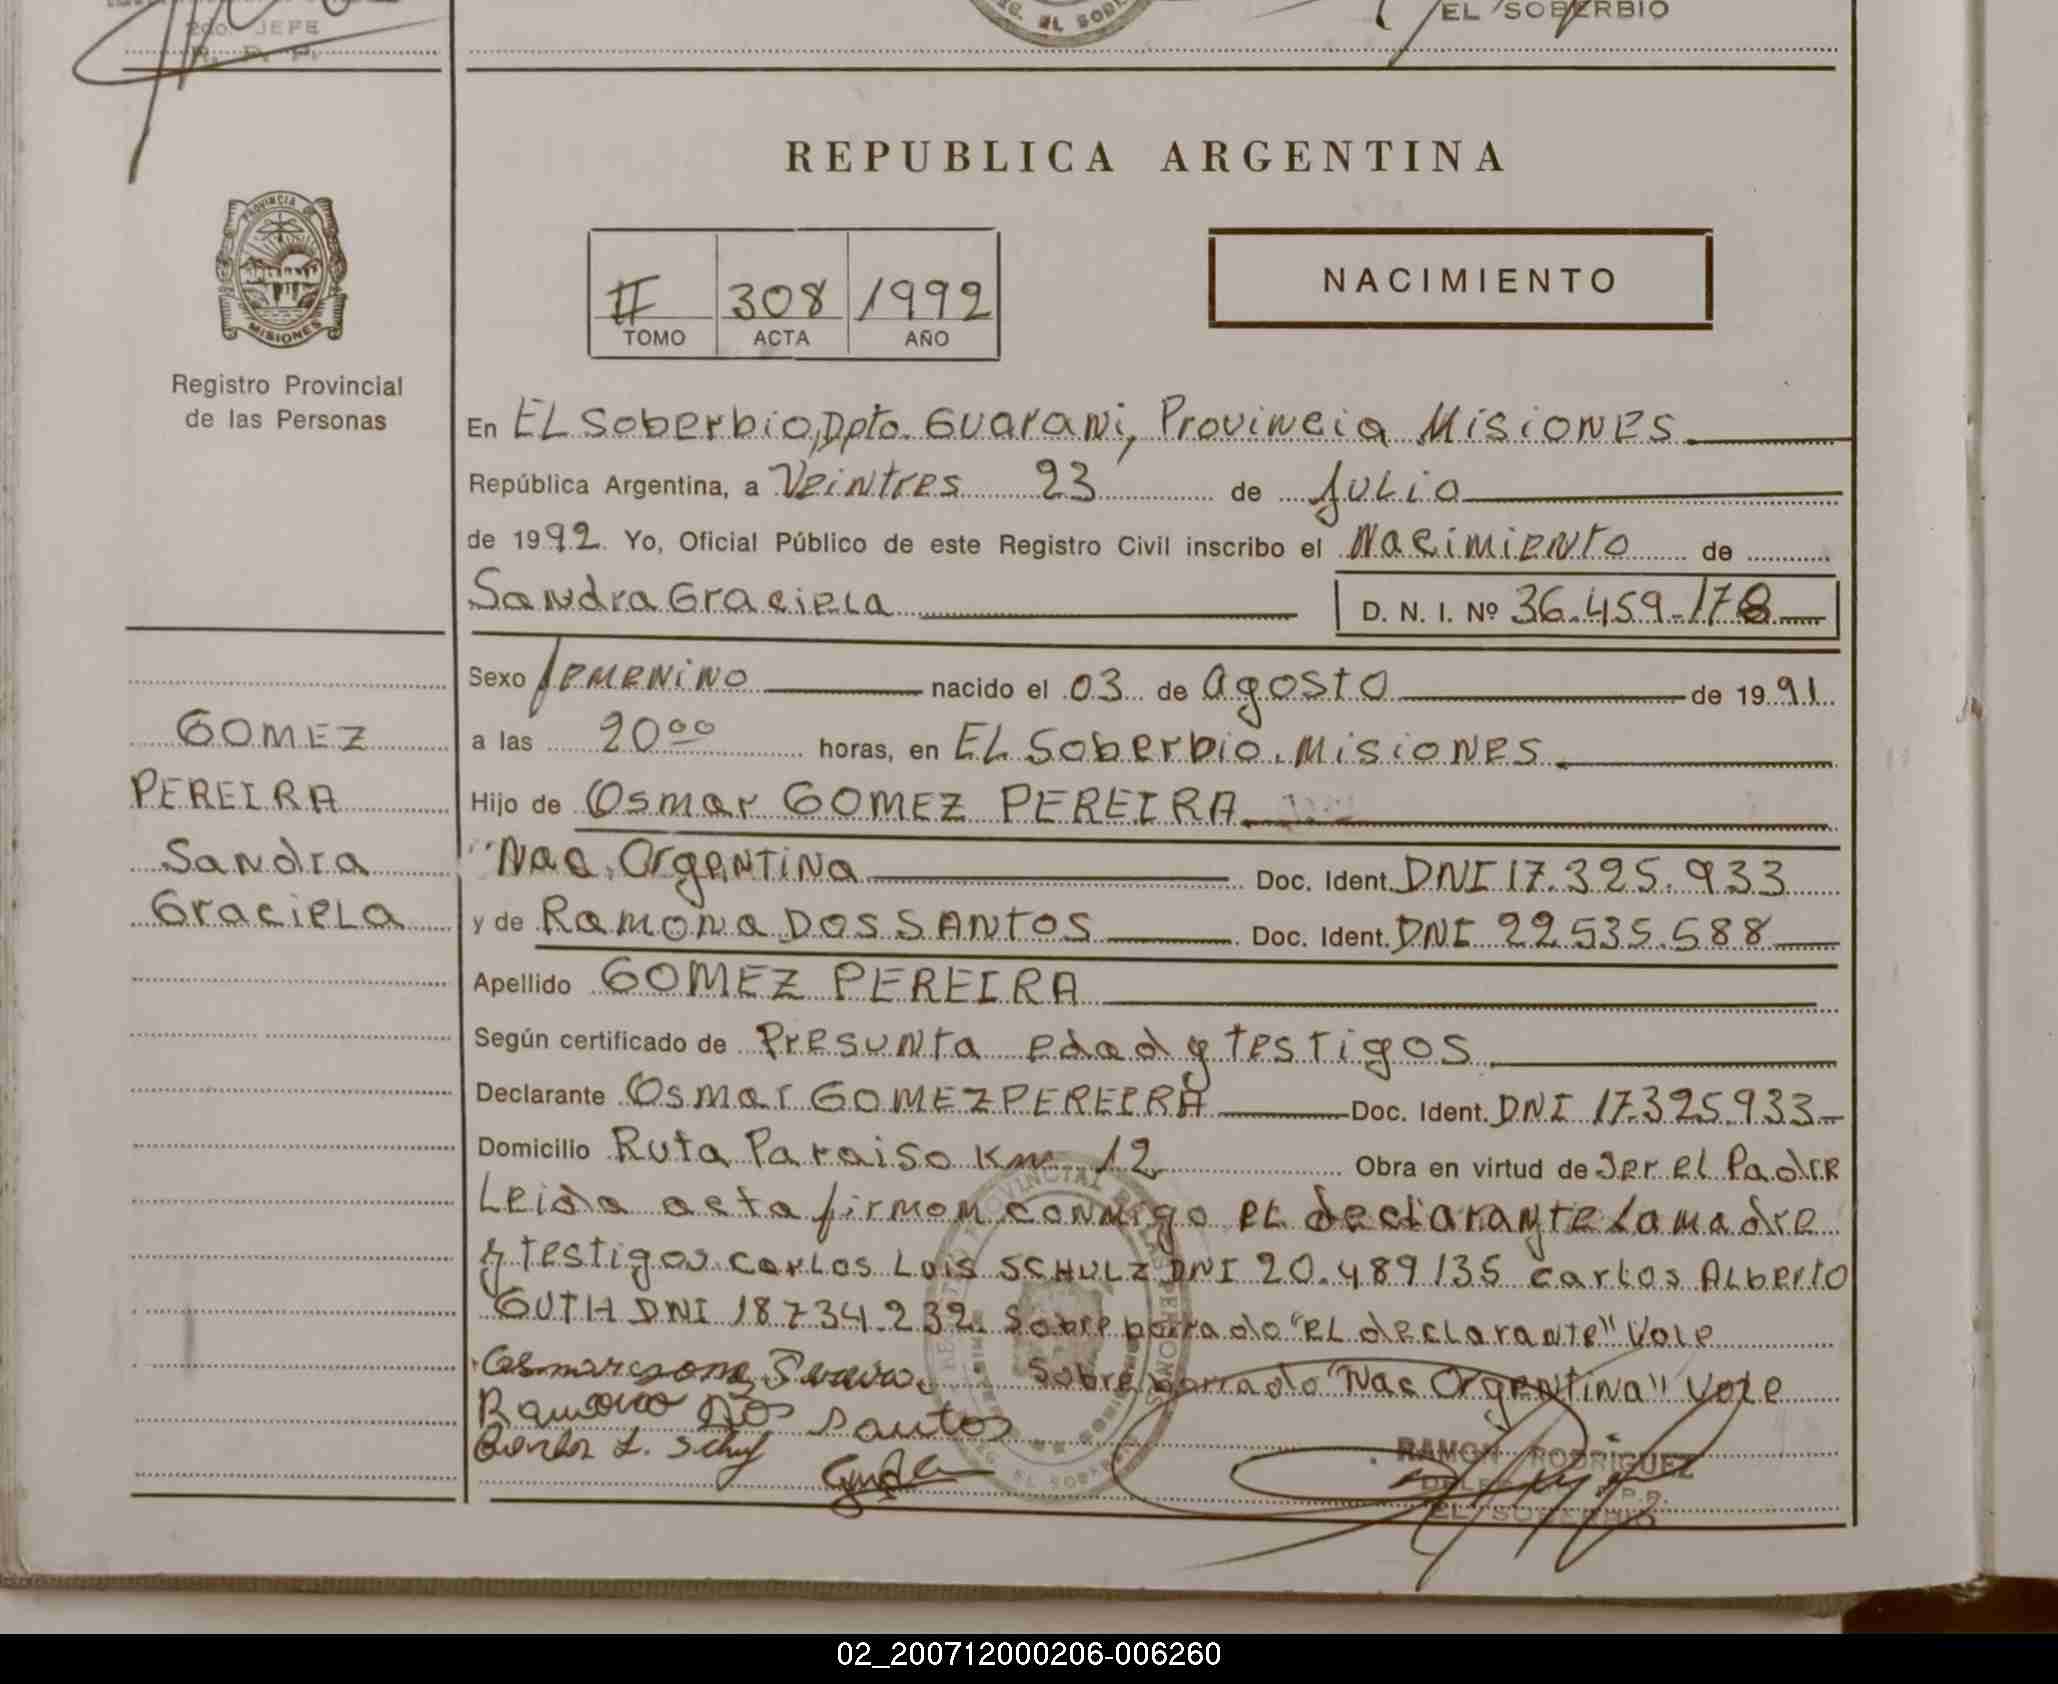 2do. JEFE
R. P. P.
EL SOBERBIO
REPUBLICA ARGENTINA
PROVINCIA DE
MISIONES
II 308 1992
TOMO ACTA AÑO
NACIMIENTO
Registro Provincial
de las Personas
En EL Soberbio, Dpto. Guarani, Provincia Misiones
República Argentina, a Veintres 23 de Julio
de 1992 Yo, Oficial Público de este Registro Civil inscribo el Nacimiento de
Sandra Graciela D. N. I. Nº 36.459.178
Sexo femenino nacido el 03 de agosto de 1991
a las 20⁰⁰ horas, en EL Soberbio. Misiones
Hijo de Osmar GOMEZ PEREIRA
"Nac. Argentina Doc. Ident. DNI 17.325.933
y de Ramona DOS SANTOS Doc. Ident. DNI 22.535.588
Apellido GOMEZ PEREIRA
Según certificado de Presunta edad y testigos
Declarante Osmar GOMEZ PEREIRA Doc. Ident. DNI 17.325.933
Domicilio Ruta Paraiso Km 12 Obra en virtud de Ser el Padre
Leida acta firman conmigo el declarante La madre
y testigos Carlos Luis SCHULZ DNI 20.489135 Carlos Alberto
GUTH DNI 18.734.232. Sobre borrado "el declarante" Vale
Sobre borrado "Nac Argentina" Vale
Ramona Dos Santos
Carlos L. Schulz
RAMON RODRIGUEZ
EL SOBERBIO
GOMEZ
PEREIRA
Sandra
Graciela
02_200712000206-006260